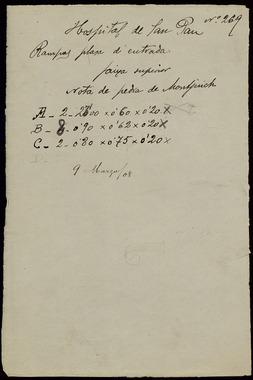 nº 269
Hospital de San Pau
Rampas plaza d entrada
faixa superior
Nota de pedra de Montjuich
A - 2 - 2'00 x 0'60 x 0'20 x
B - 8 - 0'90 x 0'62 x 0'20 x
C - 2 - 0'80 x 0'75 x 0'20 x
9 Marzo/08